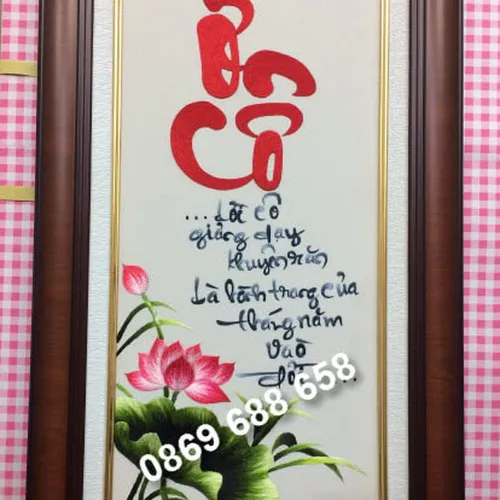 Cô
...Lời cô
giảng dạy
khuyên răn
Là hành trang của
tháng năm
vào
đời...
0869 688 658